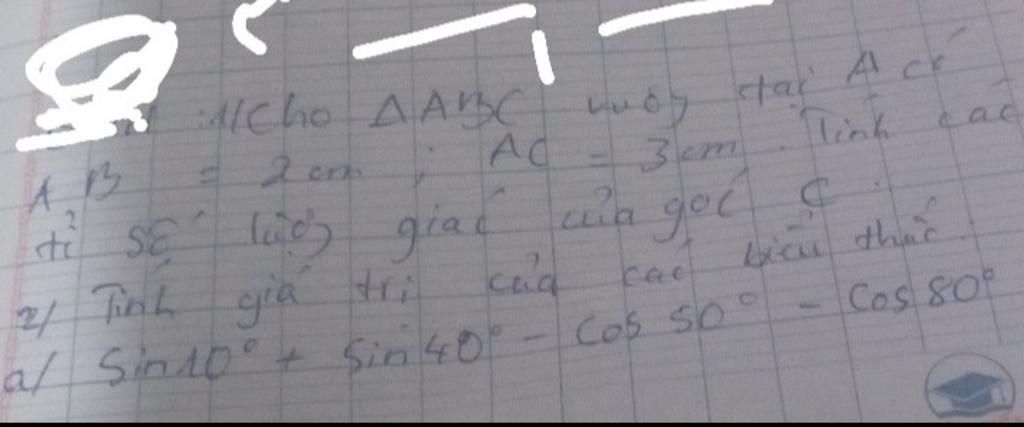 1/ Cho ΔABC vuông tại A có
AB = 2cm ; AC = 3cm. Tính các
tỉ số lượng giác của góc C.
2/ Tính giá trị của các biểu thức
a/ Sin10° + Sin40° - Cos50° - Cos80°